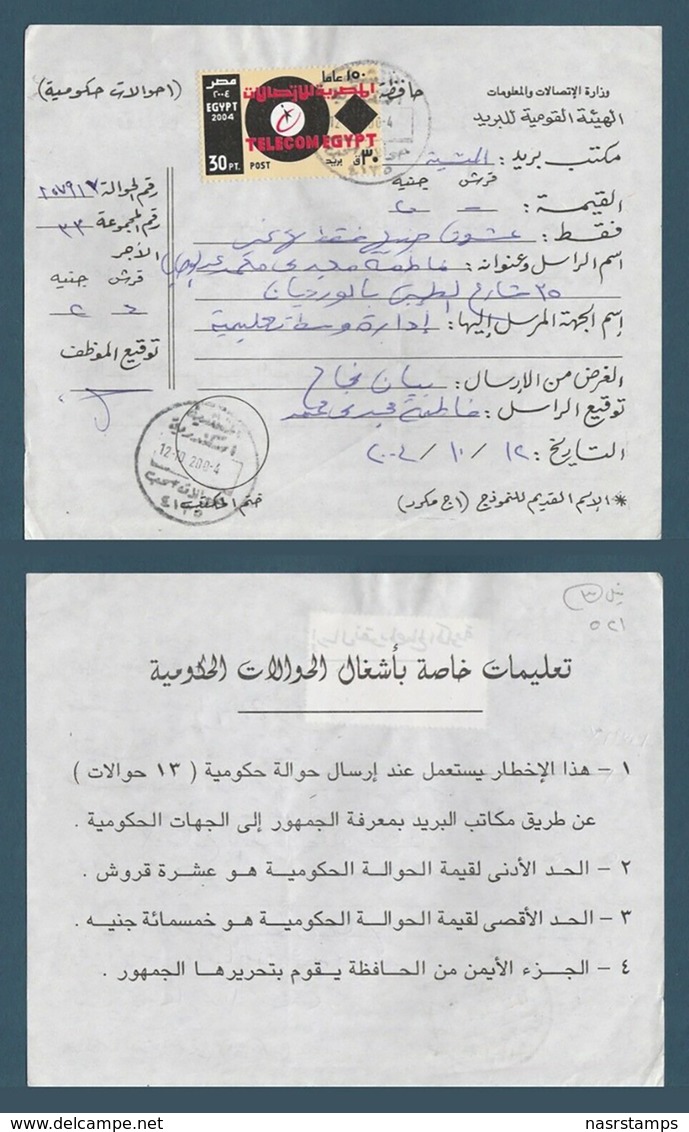 وزارة الإتصالات والمعلومات
الهيئة القومية للبريد
حافظة
(١ حوالات حكومية)
١٥٠ عاما
المصرية للاتصالات
TELECOM EGYPT
مصر
٢٠٠٤
EGYPT
2004
30 PT.
POST
بريد
٣٠ ق
مكتب بريد : المنشية
قرش جنيه
القيمة : - ٢٠
فقط : عشرون جنيه فقط لا غير
اسم الراسل وعنوانه : فاطمة مجدى محمد
٣٥ شارع بالورديان
إسم الجهة المرسل إليها : إدارة وسط تعليمية
الغرض من الإرسال : بيان نجاح
توقيع الراسل : فاطمة مجدى محمد
التاريخ : ١٢ / ١٠ / ٢٠٠٤
* الإسم القديم للنموذج (١ج مكرر)
ختم المكتب
رقم الحوالة
رقم المجموعة ٣٣
الأجر
قرش جنيه
توقيع الموظف
المنشية
اسكندرية
12-10 200-4
تعليمات خاصة بأشغال الحوالات الحكومية
١ – هذا الإخطار يستعمل عند إرسال حوالة حكومية ( ١٣ حوالات )
عن طريق مكاتب البريد بمعرفة الجمهور إلى الجهات الحكومية .
٢ – الحد الأدنى لقيمة الحوالة الحكومية هو عشرة قروش .
٣ – الحد الأقصى لقيمة الحوالة الحكومية هو خمسمائة جنيه .
٤ – الجزء الأيمن من الحافظة يقوم بتحريرها الجمهور .
nasrstamps
delcampe.net